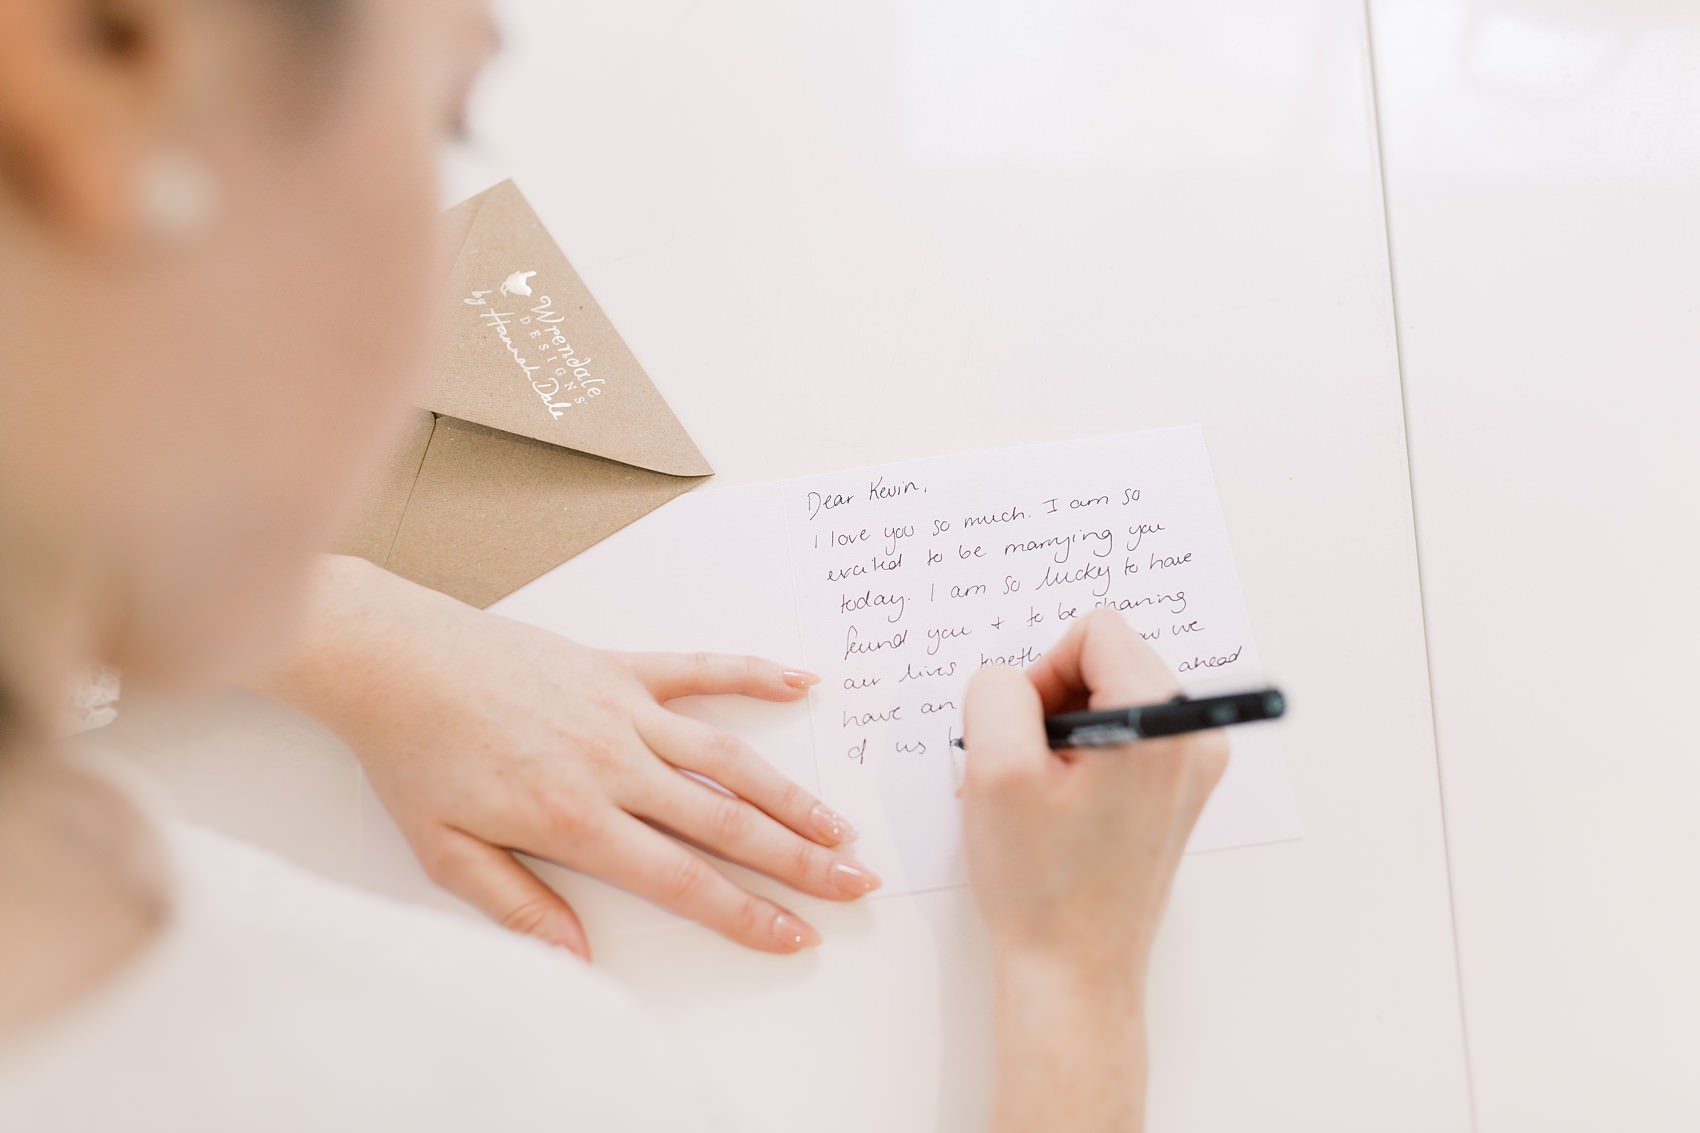 Wrendale
DESIGNS
by Hannah Dale
Dear Kevin,
I love you so much. I am so
excited to be marrying you
today. I am so lucky to have
found you + to be sharing
our lives we
have an ahead
of us